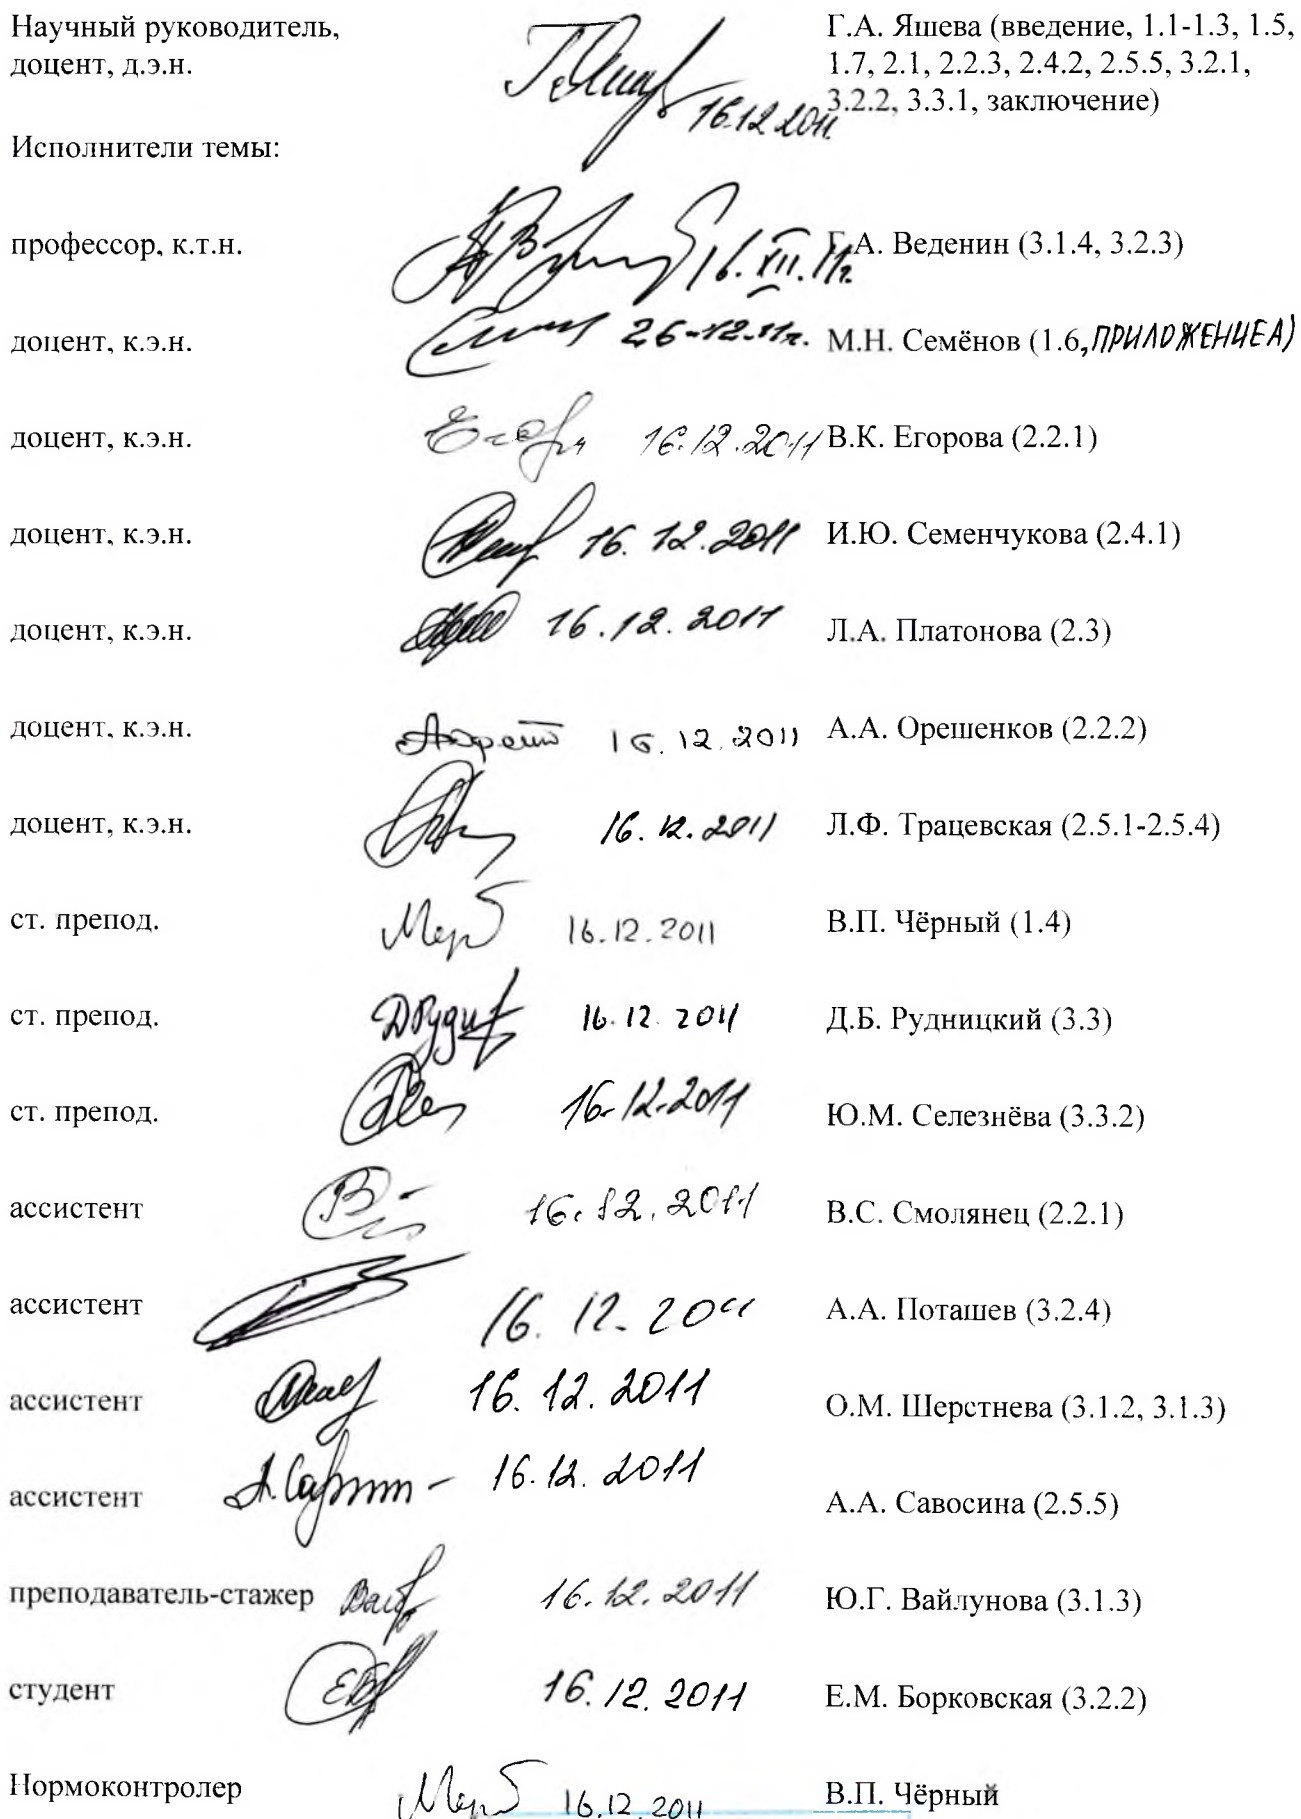 Научный руководитель,
доцент, д.э.н.
16.12.2011
Г.А. Яшева (введение, 1.1-1.3, 1.5,
1.7, 2.1, 2.2.3, 2.4.2, 2.5.5, 3.2.1,
3.2.2, 3.3.1, заключение)
Исполнители темы:
профессор, к.т.н. 16.XII.11г. Г.А. Веденин (3.1.4, 3.2.3)
доцент, к.э.н. 26-12.11г. М.Н. Семёнов (1.6, ПРИЛОЖЕНИЕ А)
доцент, к.э.н. 16.12.2011 В.К. Егорова (2.2.1)
доцент, к.э.н. 16.12.2011 И.Ю. Семенчукова (2.4.1)
доцент, к.э.н. 16.12.2011 Л.А. Платонова (2.3)
доцент, к.э.н. 16.12.2011 А.А. Орешенков (2.2.2)
доцент, к.э.н. 16.12.2011 Л.Ф. Трацевская (2.5.1-2.5.4)
ст. препод. 16.12.2011 В.П. Чёрный (1.4)
ст. препод. 16.12.2011 Д.Б. Рудницкий (3.3)
ст. препод. 16-12-2011 Ю.М. Селезнёва (3.3.2)
ассистент 16.12.2011 В.С. Смолянец (2.2.1)
ассистент 16.12.2011 А.А. Поташев (3.2.4)
ассистент 16.12.2011 О.М. Шерстнева (3.1.2, 3.1.3)
ассистент 16.12.2011 А.А. Савосина (2.5.5)
преподаватель-стажер 16.12.2011 Ю.Г. Вайлунова (3.1.3)
студент 16.12.2011 Е.М. Борковская (3.2.2)
Нормоконтролер 16.12.2011 В.П. Чёрный